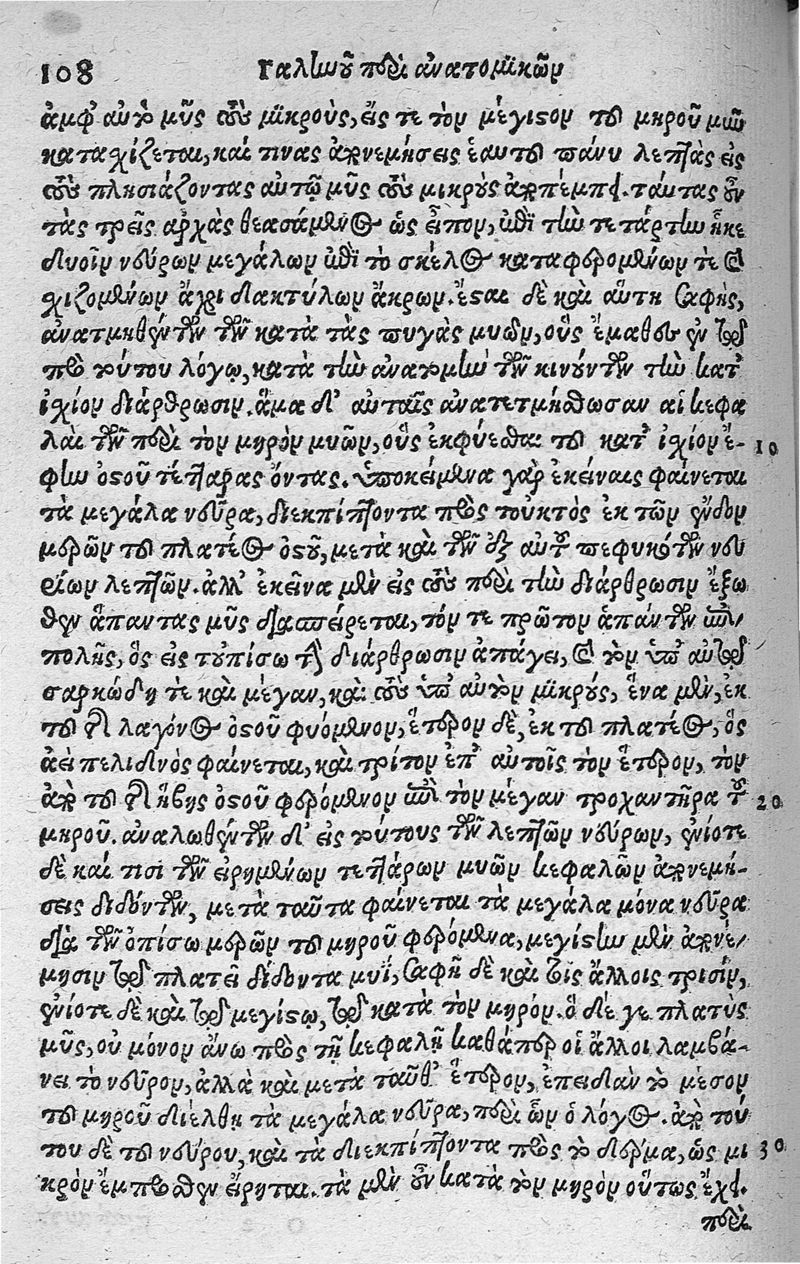 108 Γαληνοῦ περὶ ἀνατομικῶν
ἀμφ' αὐτὸ μῦς τοὺς μικροὺς, εἴς τε τὸν μέγιστον τοῦ μηροῦ μυῶν
κατασχίζεται, καί τινας ἀπονεμήσεις ἑαυτοῦ πάνυ λεπτὰς εἰς
τοὺς πλησιάζοντας αὐτῷ μῦς τοὺς μικροὺς ἀποπέμπει. ταύτας οὖν
τὰς τρεῖς ἀρχὰς θεασάμενος ὡς εἶπον, ἐπὶ τὴν τετάρτην ἧκε
δυοῖν νεύρων μεγάλων ἐπὶ τὸ σκέλος καταφερομένων τε καὶ
σχιζομένων ἄχρι δακτύλων ἄκρων. ἔσται δὲ καὶ αὕτη σαφὴς,
ἀνατμηθέντων τῶν κατὰ τὰς πυγὰς μυῶν, οὓς ἔμαθες ἐν τῷ
πρὸ τούτου λόγῳ, κατὰ τὴν ἀνατομὴν τῶν κινούντων τὴν κατ'
ἰχίον διάρθρωσιν. ἅμα δ' αὐταῖς ἀνατετμήσθωσαν αἱ κεφα
λαὶ τῶν περὶ τὸν μηρὸν μυῶν, οὓς ἐκφύεσθαι τοῦ κατ' ἰχίον ἔ- 10
φην ὀστοῦ τέτταρας ὄντας. ὑποκείμενα γὰρ ἐκείναις φαίνεται
τὰ μεγάλα νεῦρα, διεκπίπτοντα πρὸς τοὐκτὸς ἐκ τῶν ἔνδον
μερῶν τοῦ πλατέος ὀστοῦ, μετὰ καὶ τῶν ἐξ αὐτοῦ πεφυκότων νευ
ρίων λεπτῶν. ἀλλ' ἐκεῖνα μὲν εἰς τοὺς περὶ τὴν διάρθρωσιν ἔξω
θεν ἅπαντας μῦς διασπείρεται, τόν τε πρῶτον ἁπάντων ἐπι/
πολῆς, ὃς εἰς τοὐπίσω τὴν διάρθρωσιν ἀπάγει, καὶ τὸν ὑπ' αὐτῷ
σαρκώδη τε καὶ μέγαν, καὶ τοὺς ὑπ' αὐτὸν μικρούς, ἕνα μὲν, ἐκ
τοῦ τῆς λαγόνος ὀστοῦ φυόμενον, ἕτερον δὲ, ἐκ τοῦ πλατέος, ὃς
ἀεὶ πελιδνὸς φαίνεται, καὶ τρίτον ἐπ' αὐτοῖς τὸν ἕτερον, τὸν
ἀπὸ τοῦ τῆς ἥβης ὀστοῦ φερόμενον ἐπὶ τὸν μέγαν τροχαντῆρα τοῦ 20
μηροῦ. ἀναλωθέντων δ' εἰς τούτους τῶν λεπτῶν νεύρων, ἐνίοτε
δὲ καί τισι τῶν εἰρημένων τεττάρων μυῶν κεφαλῶν ἀπονεμή-
σεις διδόντων, μετὰ ταῦτα φαίνεται τὰ μεγάλα μόνα νεῦρα
διὰ τῶν ὀπίσω μερῶν τοῦ μηροῦ φερόμενα, μεγίστην μὲν ἀπονέ/
μησιν τῷ πλατεῖ διδόντα μυΐ, σαφῆ δὲ καὶ τοῖς ἄλλοις τρισίν,
ἐνίοτε δὲ καὶ τῷ μεγίστῳ, τῷ κατὰ τὸν μηρόν. ὁ δέ γε πλατὺς
μῦς, οὐ μόνον ἄνω πρὸς τῇ κεφαλῇ καθάπερ οἱ ἄλλοι λαμβά-
νει τὸ νεῦρον, ἀλλὰ καὶ μετὰ ταῦθ' ἕτερον, ἐπειδὰν τὸ μέσον
τοῦ μηροῦ διέλθῃ τὰ μεγάλα νεῦρα, περὶ ὧν ὁ λόγος. ἀπὸ τού
του δὲ τοῦ νεύρου, καὶ τὰ διεκπίπτοντα πρὸς τὸ δέρμα, ὡς μι 30
κρὸν ἔμπροσθεν εἴρηται. τὰ μὲν οὖν κατὰ τὸν μηρὸν οὕτως ἔχει.
περὶ